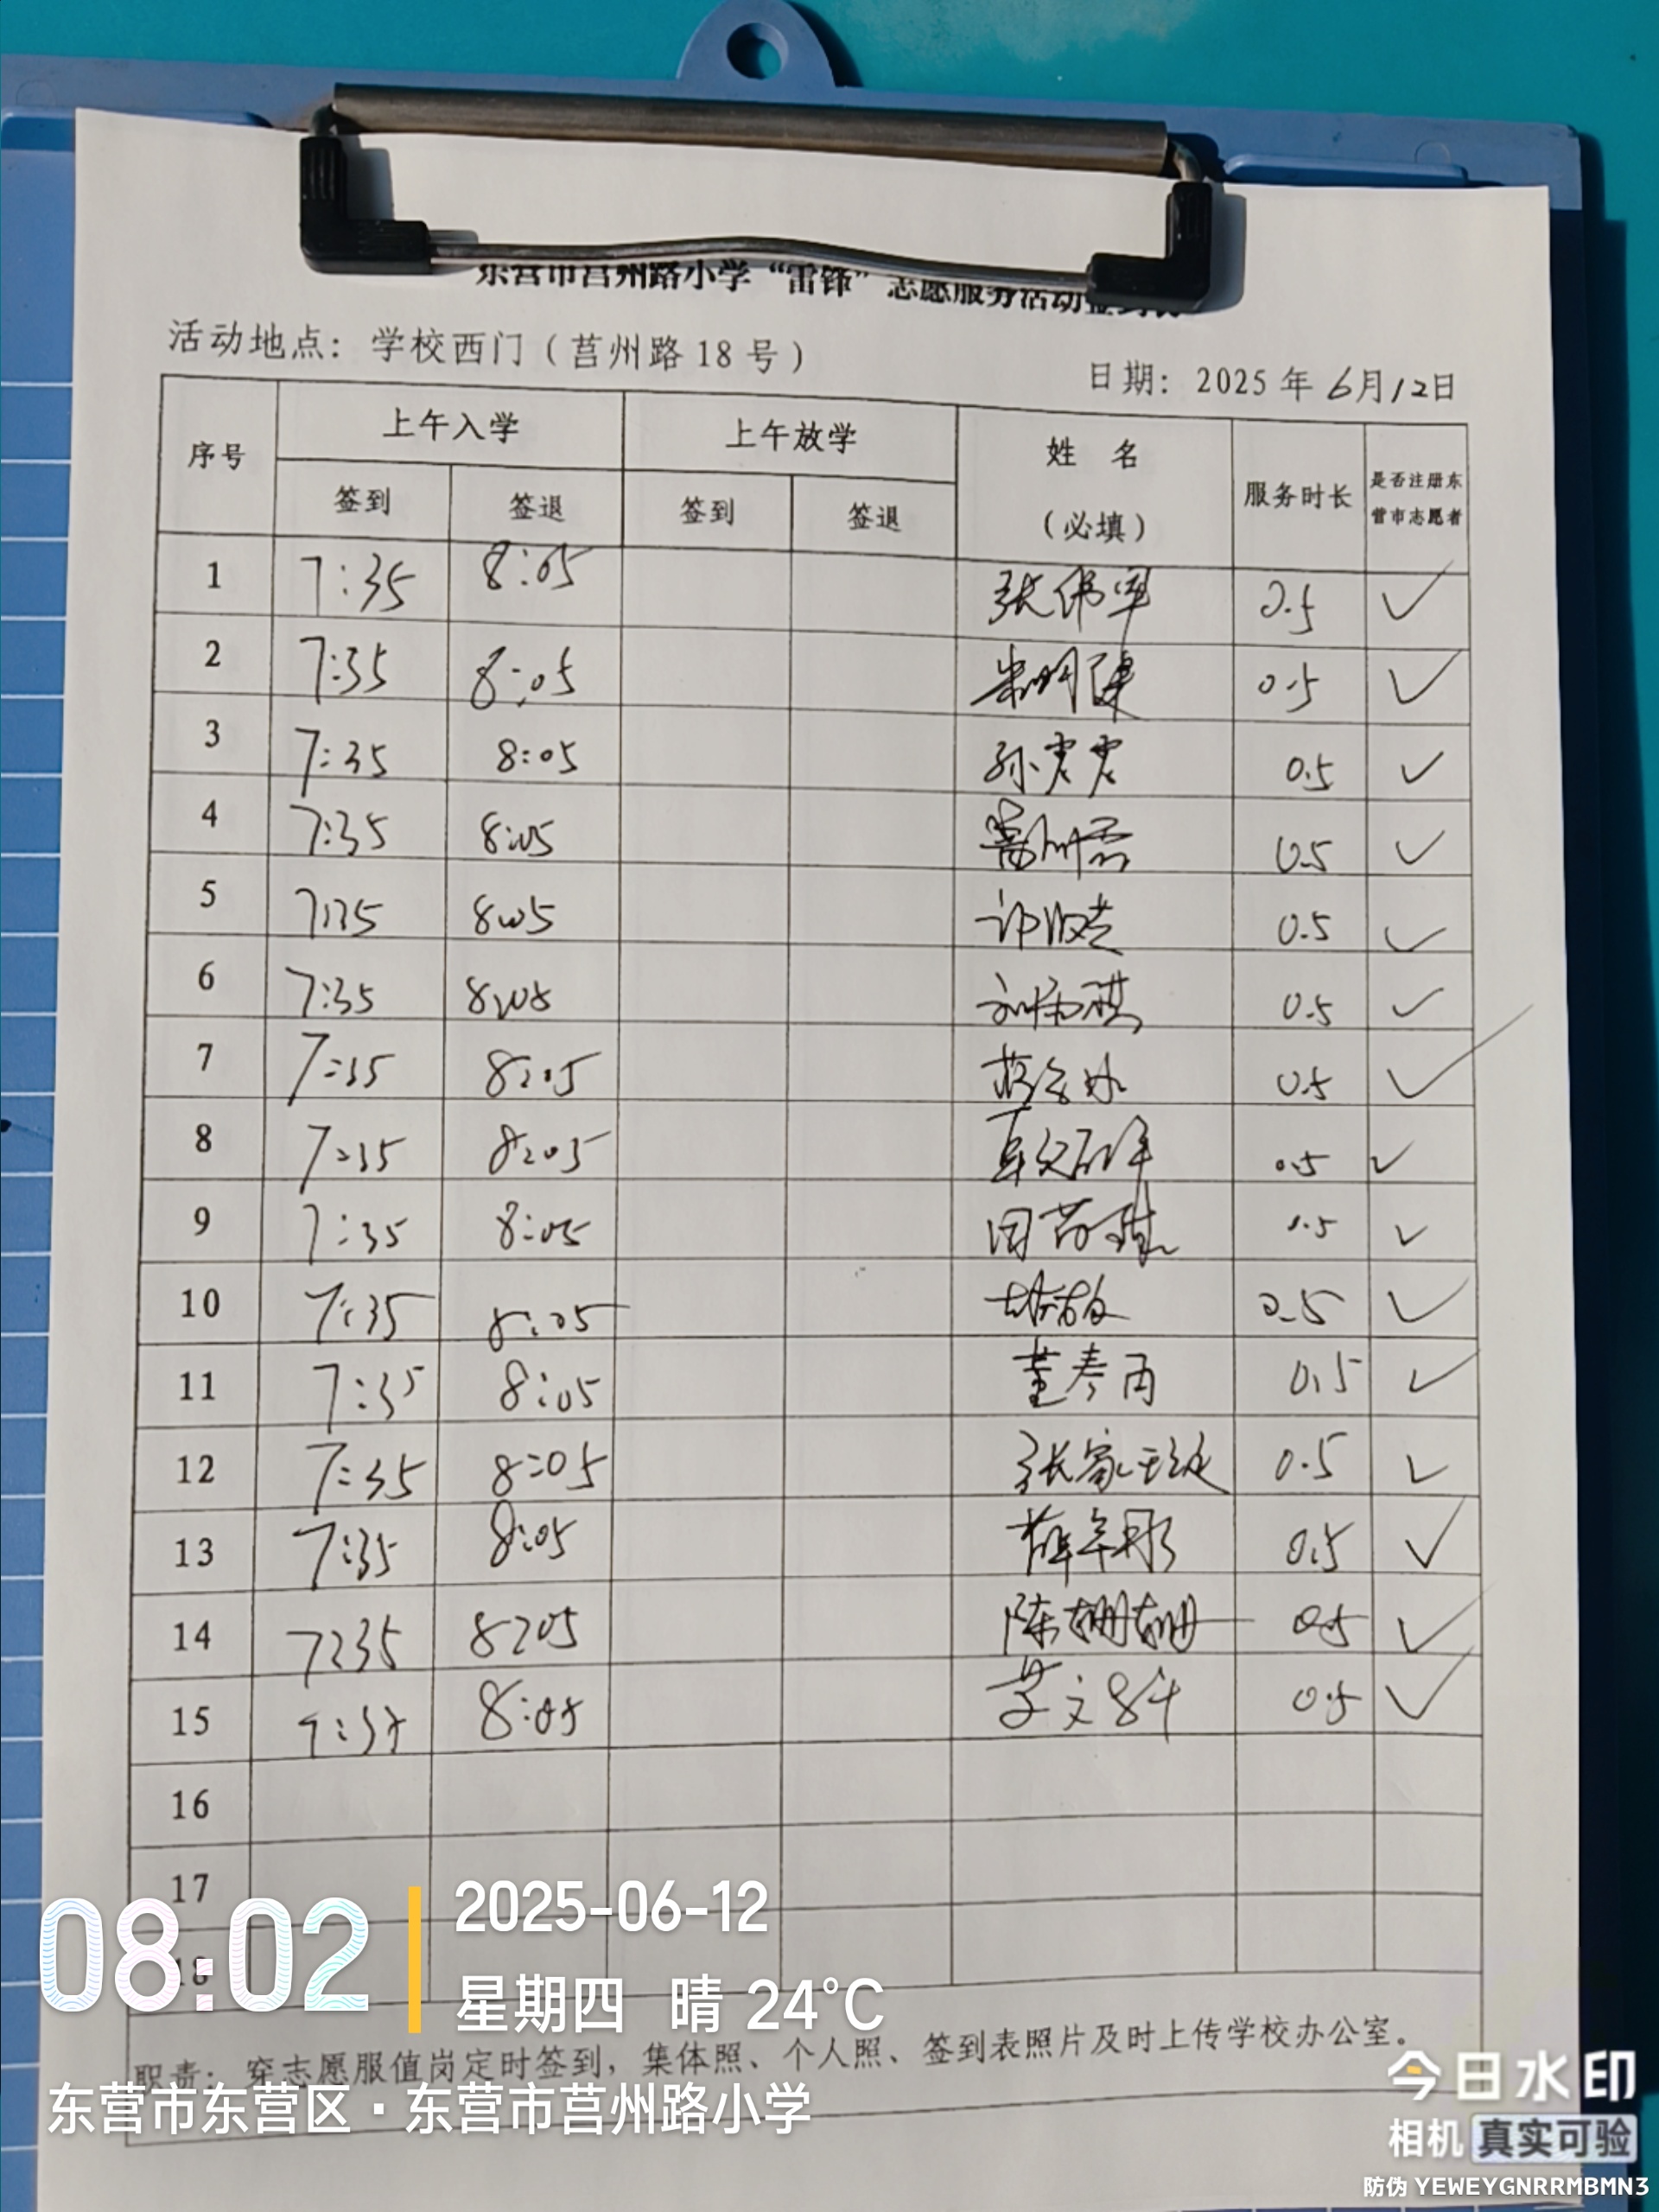 东营市莒州路小学“雷锋”志愿服务活动签到表
活动地点：学校西门（莒州路18号）
日期：2025年6月12日
序号 上午入学 上午放学 姓 名 服务时长 是否注册东
签到 签退 签到 签退 （必填） 营市志愿者
1 7:35 8:05 张伟军 0.5 ✓
2 7:35 8:05 0.5 ✓
3 7:35 8:05 孙 0.5 ✓
4 7:35 8:05 0.5 ✓
5 7:35 8:05 0.5 ✓
6 7:35 8:05 刘雨祺 0.5 ✓
7 7:35 8:05 0.5 ✓
8 7:35 8:05 0.5 ✓
9 7:35 8:05 0.5 ✓
10 7:35 8:05 0.5 ✓
11 7:35 8:05 董春雨 0.5 ✓
12 7:35 8:05 张家 0.5 ✓
13 7:35 8:05 薛 0.5 ✓
14 7:35 8:05 陈姗姗 0.5 ✓
15 7:35 8:05 0.5 ✓
16
17
18
职责：穿志愿服值岗定时签到，集体照、个人照、签到表照片及时上传学校办公室。
08:02
2025-06-12
星期四 晴 24°C
东营市东营区·东营市莒州路小学
今日水印
相机 真实可验
防伪 YEWEYGNRRMBMN3